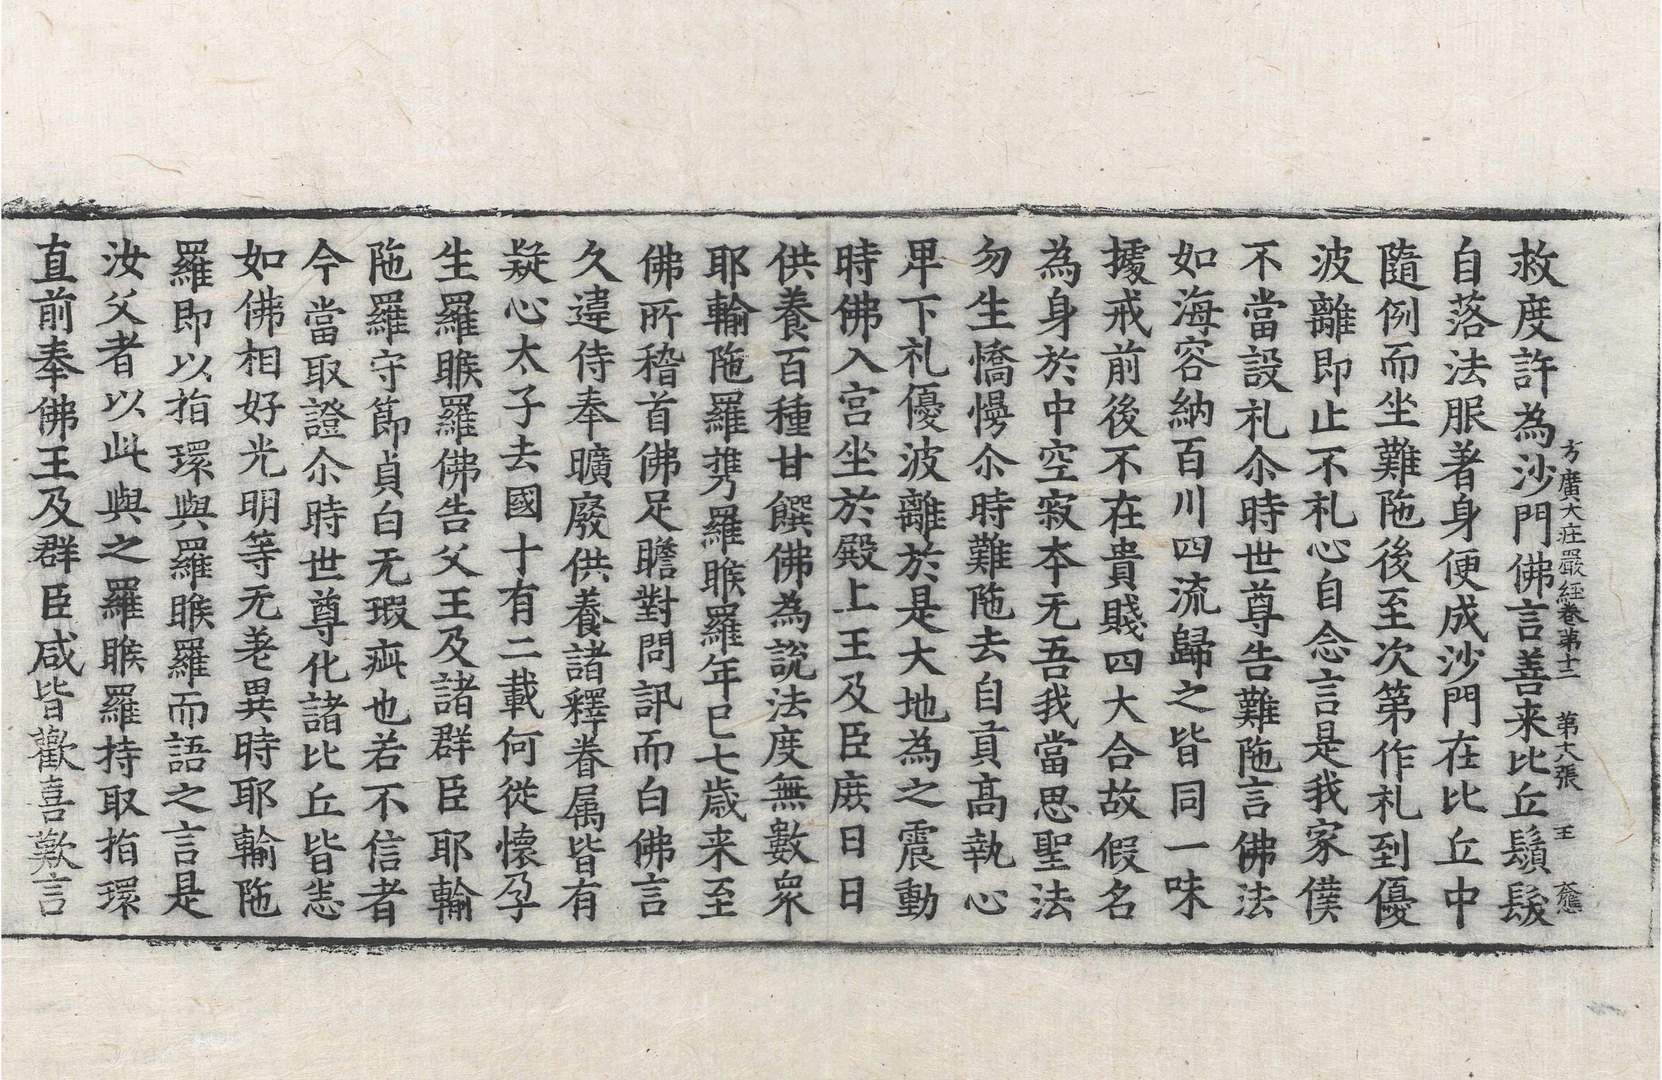 方廣大莊嚴經卷第十二 第十八張 王
救度許為沙門佛言善来比丘鬚髮
自落法服著身便成沙門在比丘中
隨例而坐難陁後至次第作礼到優
波離即止不礼心自念言是我家僕
不當設礼尒時世尊告難陁言佛法
如海容納百川四流歸之皆同一味
據戒前後不在貴賤四大合故假名
為身於中空寂本无吾我當思聖法
勿生憍慢尒時難陁去自貢高執心
卑下礼優波離於是大地為之震動
時佛入宫坐於殿上王及臣庻日日
供養百種甘饌佛為説法度無數衆
耶輸陁羅携羅睺羅年已七歳来至
佛所稽首佛足瞻對問訊而白佛言
久違侍奉曠廢供養諸釋眷属皆有
疑心太子去國十有二載何從懷孕
生羅睺羅佛告父王及諸群臣耶輸
陁羅守節貞白无瑕疵也若不信者
今當取證尒時世尊化諸比丘皆悉
如佛相好光明等无差異時耶輸陁
羅即以指環與羅睺羅而語之言是
汝父者以此與之羅睺羅持取指環
直前奉佛王及群臣咸皆歡喜歎言